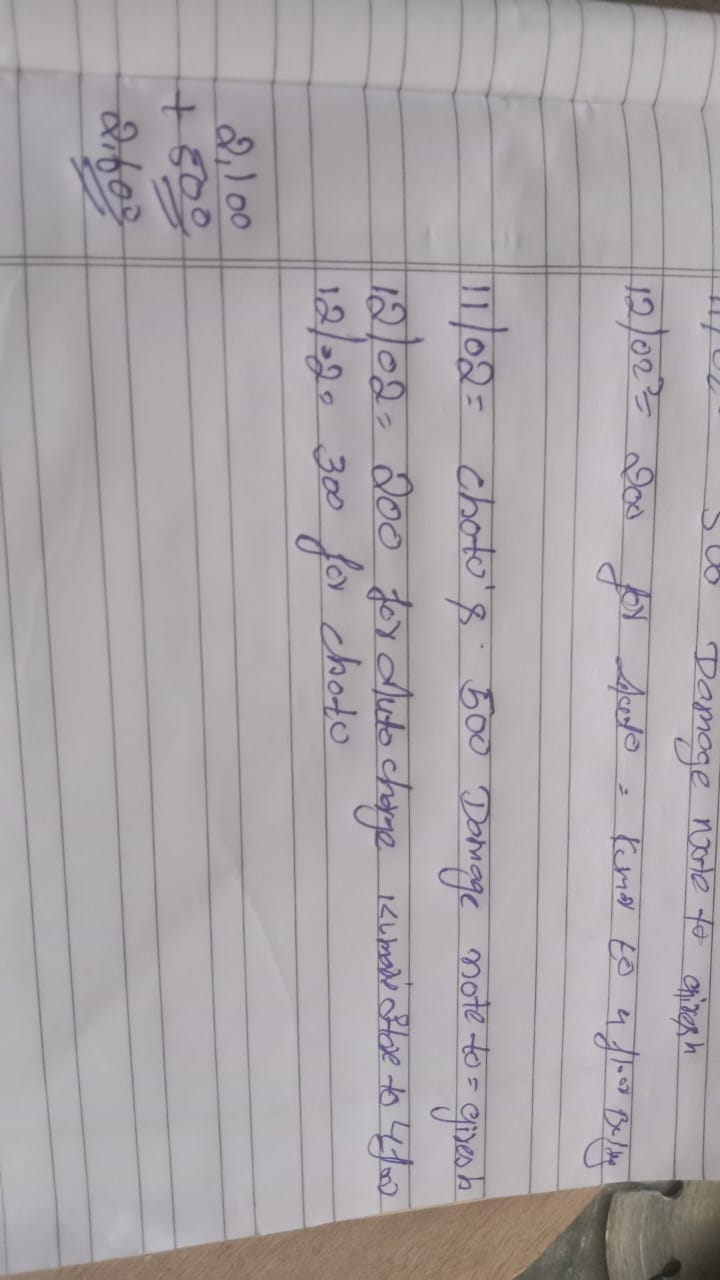 500 Damage note to Giresh
12/02 = 200 for Auto = Kumar to 4 floor
11/02 = choto's 500 Damage note to = Giresh
12/02 = 200 for Auto charge Kumar to 4 floor
12/02 = 300 for choto
2,100
+ 500
2,600